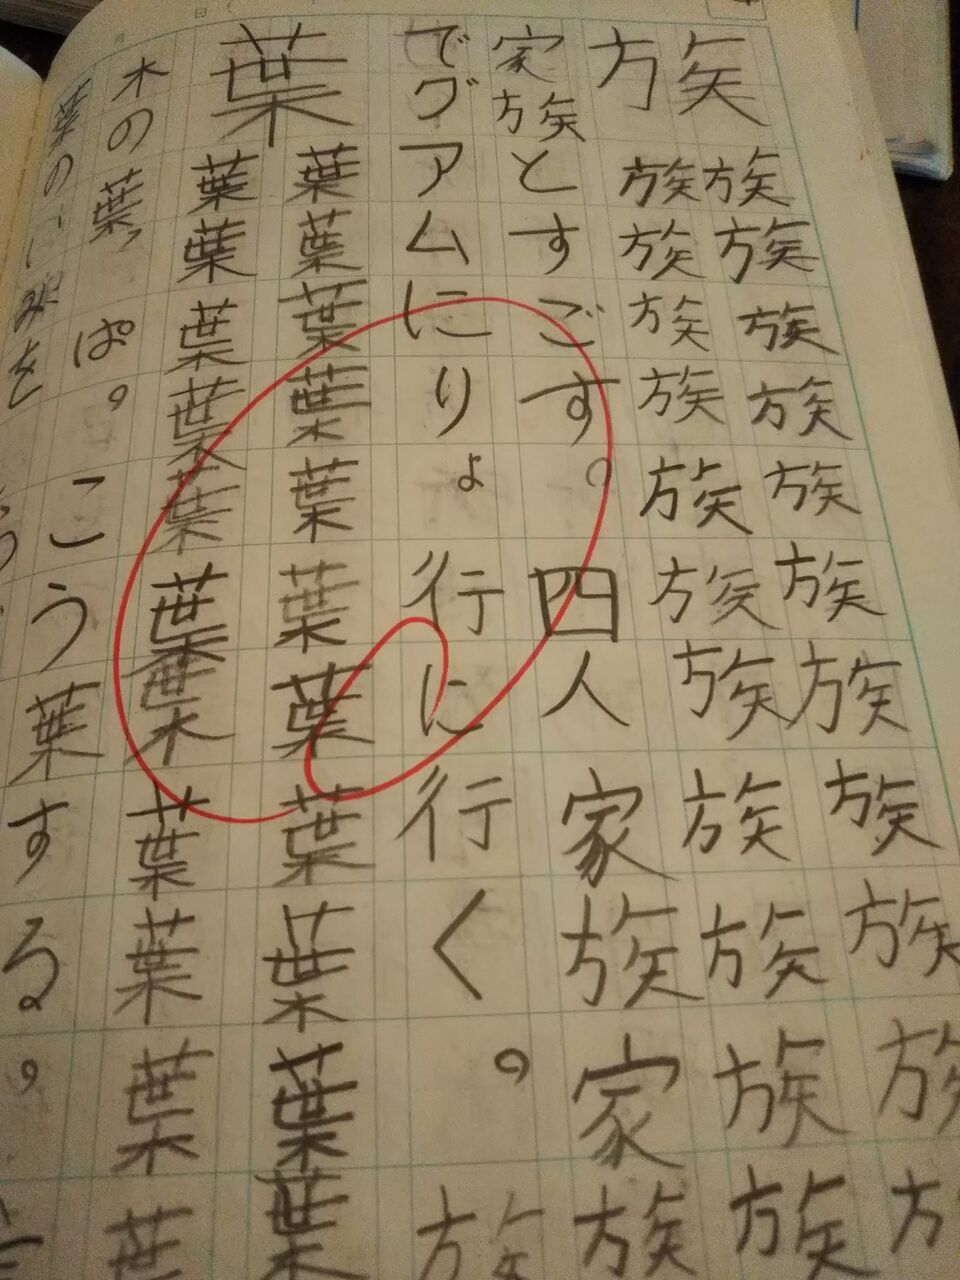 族
族族族族族族族族族族
族族族族族族族族族族族
家族とすごす。四人家族家族
でグアムにりょ行に行く。族
葉
葉葉葉葉葉葉葉葉葉葉葉
葉葉葉葉葉葉葉葉葉葉葉
木の葉っぱ。こう葉する。
葉の